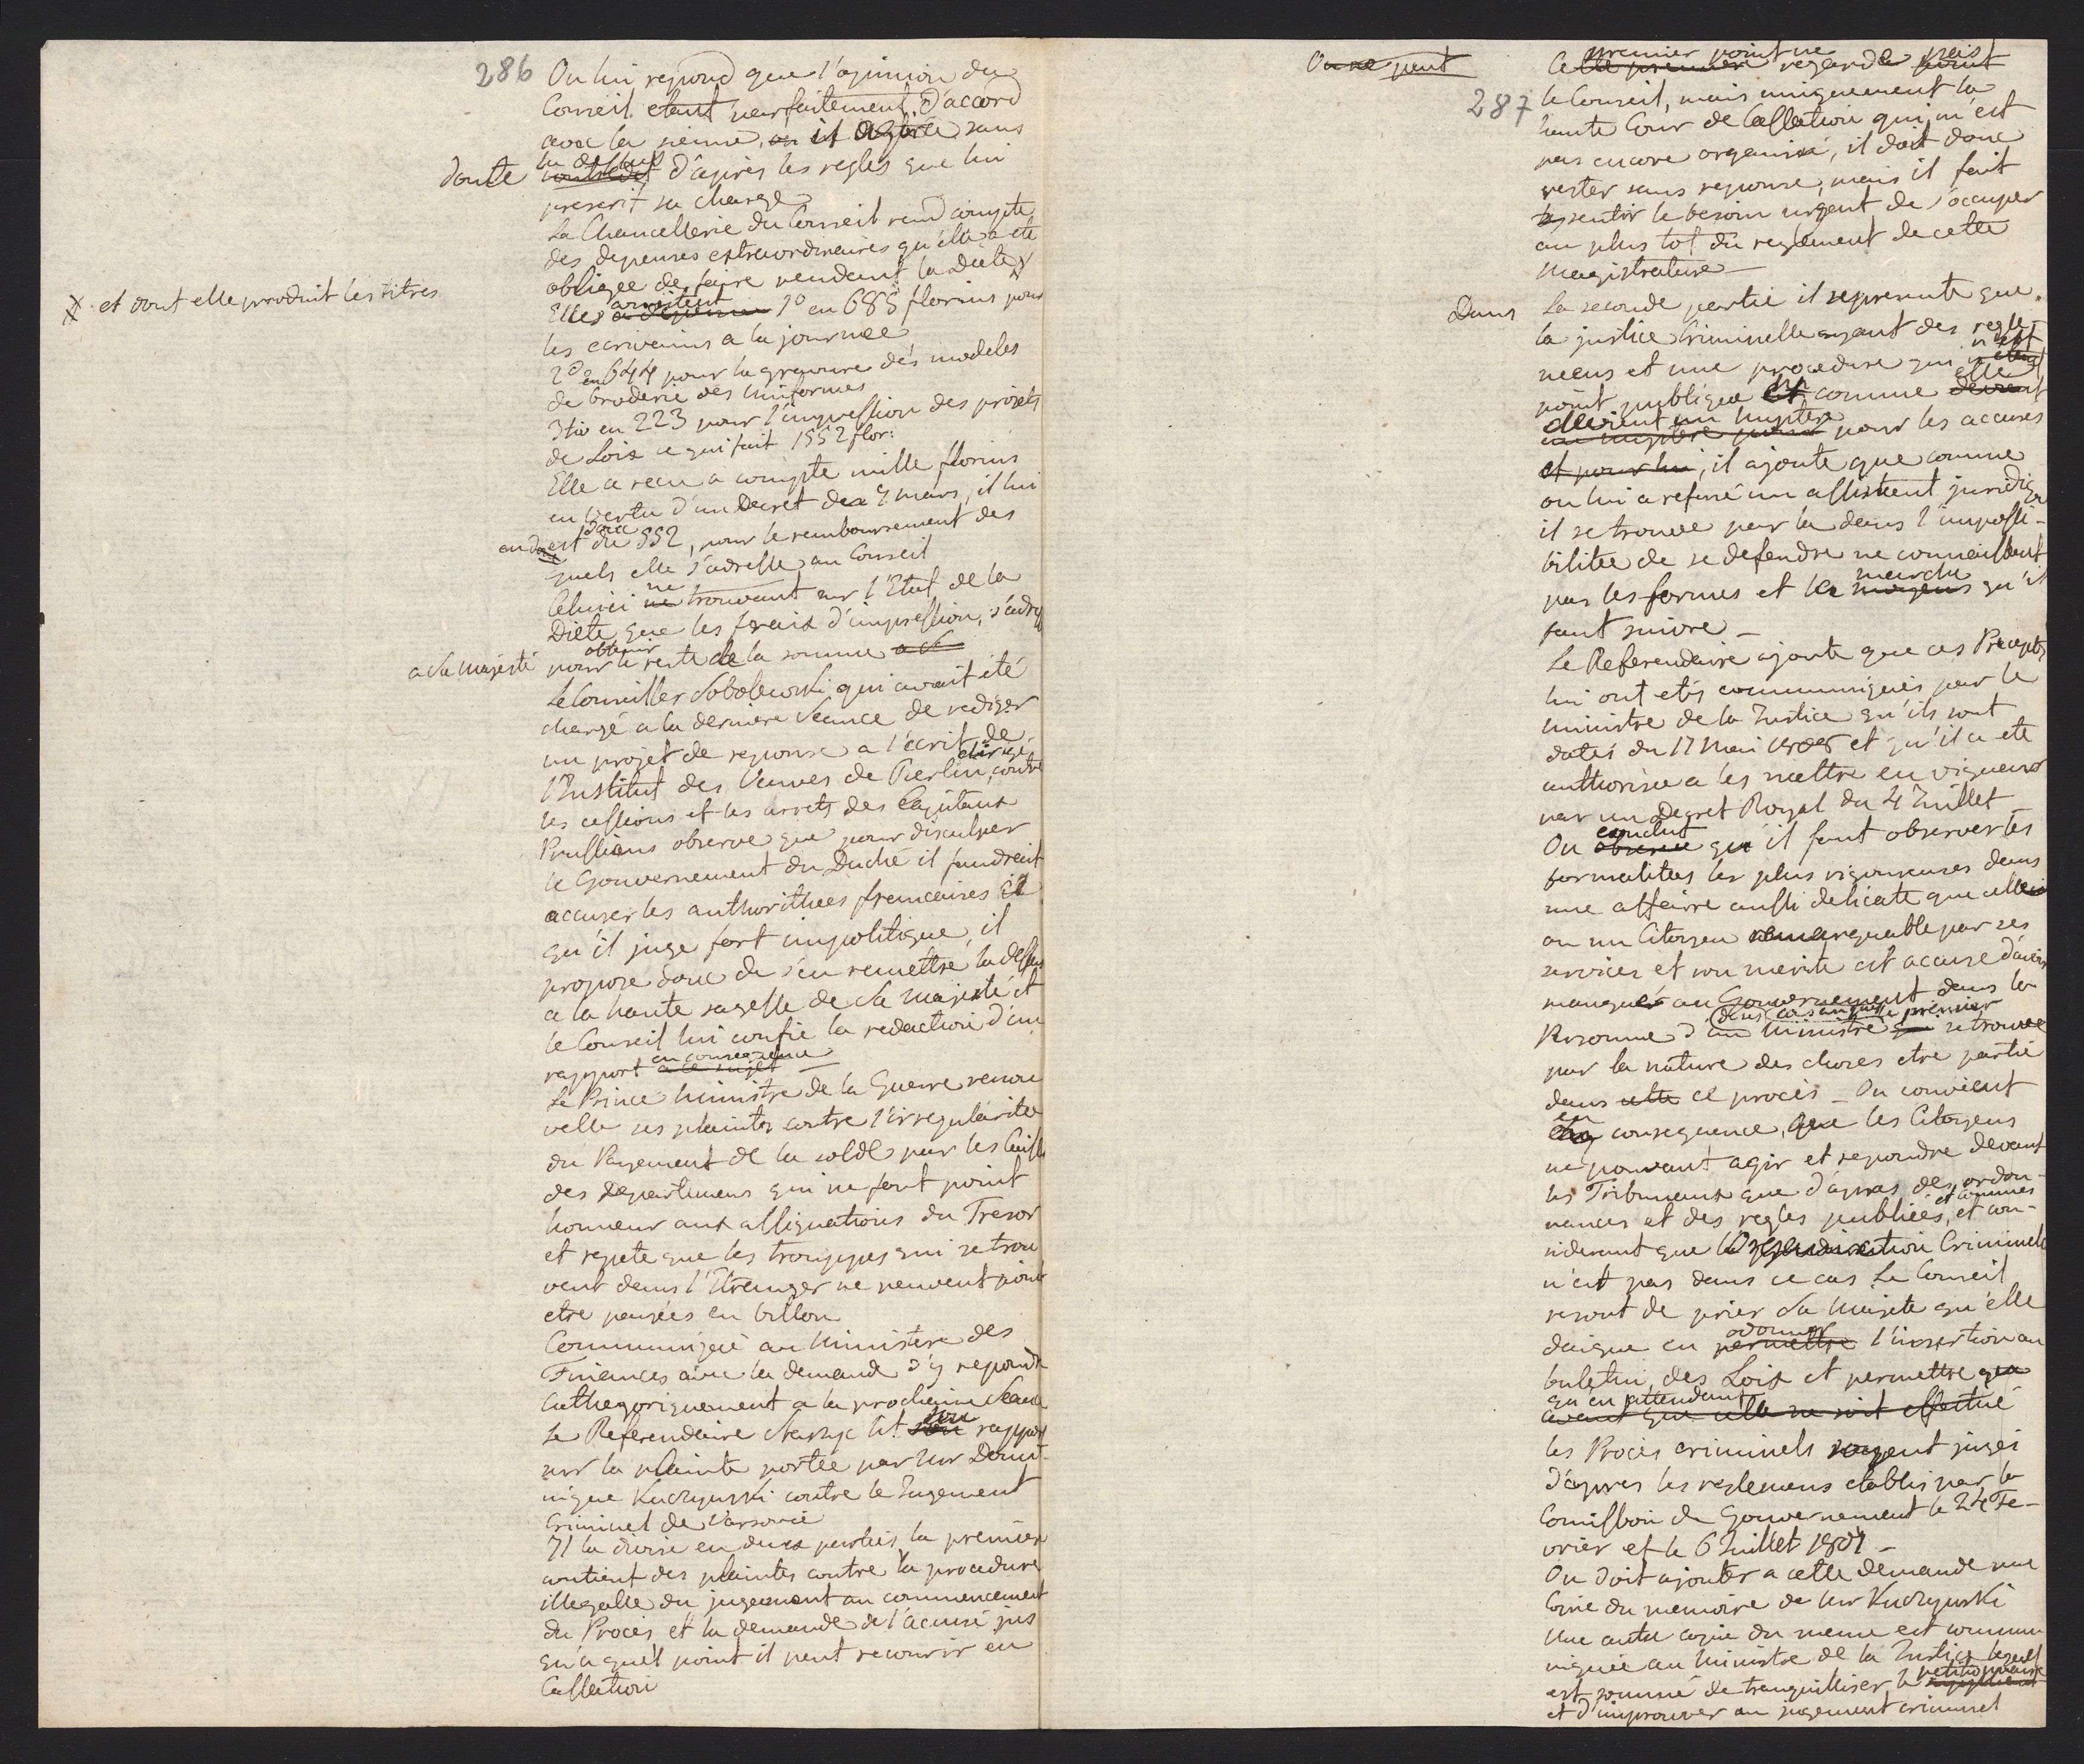 286
On lui repond que l'opinion du
Conseil etant parfaitement d'accord
avec la sienne, on il agira sans
doute la dessus d'après les regles que lui
prescrit sa charge
La Chancellerie du Conseil rend compte
des depenses extraordinaires qu'elle a eté
obligée de faire pendant la Diete
X et dont elle produit les titres
Elles 1o en 685 florins pour
les ecrivains a la journée
2o en 644 pour la gravure des modeles
de broderie des Uniformes
3tio en 223 pour l'impression des projets
de Loix ce qui fait 1552 flor:
Elle a recu a compte mille florins
en vertu d'un Decret du 7 mars, il lui
en est donc du 552, pour le remboursement des
quels elle s'adresse au Conseil
Celuici ne trouvant sur l'Etat de la
Diete que les fraix d'impression, s'adresse
a Sa Majesté pour obtenir le reste de la somme
Le Conseiller Sobolewski qui avait été
chargé a la derniere Seance de rediger
un projet de reponse a l'écrit de
l'Institut des Veuves de Berlin, dirigé contre
les cessions et les arrets des Capitaux
Prussiens observe que pour disculper
le Gouvernement du Duché il faudrait
accuser les authorithees francaises ce
qu'il juge fort impolitique, il
propose donc de s'en remettre la dessus
a la haute sagesse de Sa Majesté et
le Conseil lui confie la redaction d'un
rapport en consequence a ce sujet
Le Prince Ministre de la Guerre renou
velle ses plaintes contre l'irregularitée
du Payement de la solde par les Caisses
des Departemens qui ne font point
honneur aux assignations du Tresor
et repete que les trouppes qui se trou
vent dans l'Etranger ne peuvent point
etre payées en billon
Communiqué au Ministère des
Finances avec la demande d'y repondre
cathegoriquement a la prochaine Seance
Le Referendaire lit son rapport
sur la plainte portée par Mr Domi-
nique Kuczynski contre le Jugement
Criminel de Varsovie
Il la divise en deux parties, la premiere
contient des plaintes contre la procedure
illegalle du jugement au commencement
du Procès et la demande de l'accusé jus
qu'a quel point il peut recourir en
Cassation
On ne peut
287
Ce premier point ne regarde pas
le Conseil, mais uniquement la
haute Cour de Cassation qui n'est
pas encore organisé, il doit donc
rester sans reponse, mais il fait
sentir le besoin urgent de s'occuper
au plus tot du reglement de cette
Magistrature —
Dans la seconde partie il represente que
la justice Criminelle ayant des regle-
mens et une procedure qui n'est
point publique et comme elle
devient un mystere pour les accusés
et pour lui, il ajoute que comme
on lui a refusé un assistent juridique
il se trouve par la dans l'impossi-
bilitée de se defendre ne connaissant
pas les formes et la marche qu'il
faut suivre —
Le Referendaire ajoute que ces Preceptes
lui ont etés communiqués par le
ministre de la Justice qu'ils sont
datés du 17 Mai 1808 et qu'il a eté
authorisée a les mettre en vigueur
par un Decret Royal du 4 Juillet —
On conclut qu'il faut observer les
formalitées les plus rigoureuses dans
une affaire aussi delicate que celleci
ou un Citoyen remarquable par ses
services et son merite est accusé d'avoir
manqué au Gouvernement dans la
Personne d'un ministre se trouve
par la nature des choses etre partie
dans cette ce procès — On convient
en consequence, que les Citoyens
ne pouvant agir et repondre devant
les Tribunaux que d'apres des ordon-
nances et des regles publiées, et connues et con-
siderant que l'Organisation Criminele
n'est pas dans ce cas Le Conseil
resout de prier Sa Majesté qu'elle
daigne en ordonner permettre l'insertion au
buletin des Loix et permettre
qu'en attendant
avant que cela ne soit effectué
les Procès criminels soyent jugés
d'apres les reglemens etablis par la
Comission de Gouvernement le 24 Fe-
vrier et le 6 Juillet 1807 —
On doit ajouter a cette demande une
Copie du memoire de Mr Kuczynski
Une autre copie du meme est commu
niquée au Ministre de la Justice lequel
est sommé de tranquilliser le petitionnaire
et d'improuver au jugement criminel